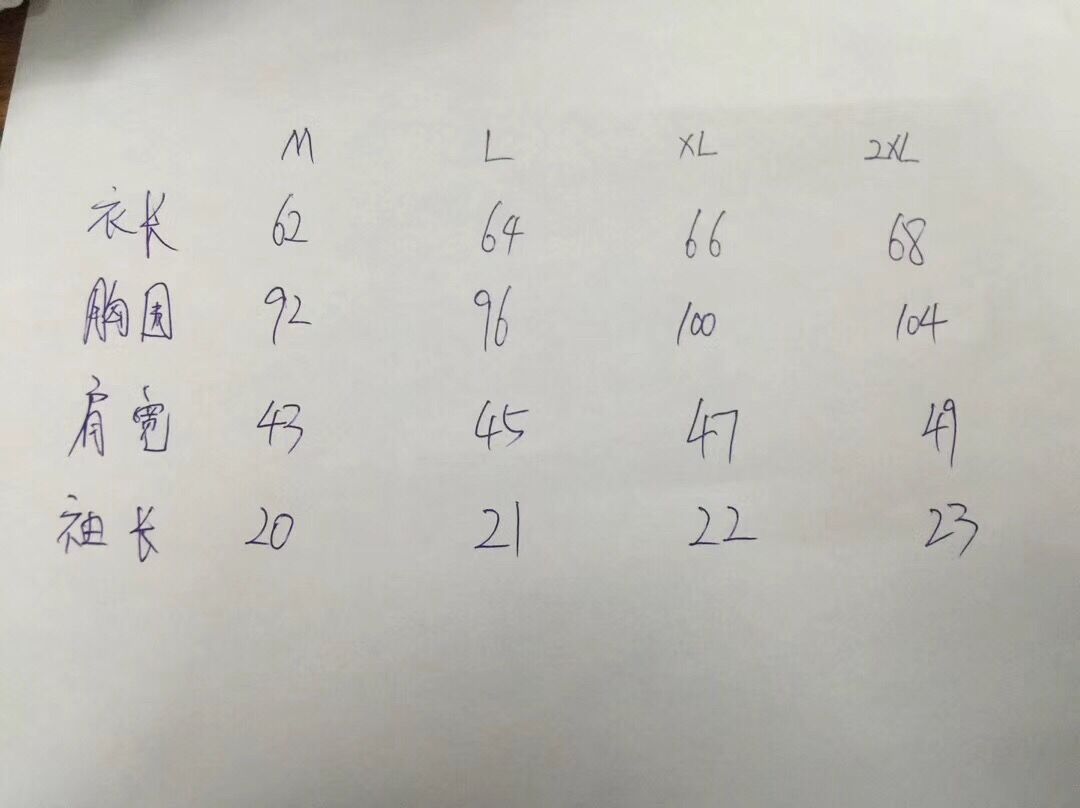 M L XL 2XL
衣长 62 64 66 68
胸围 92 96 100 104
肩宽 43 45 47 49
袖长 20 21 22 23